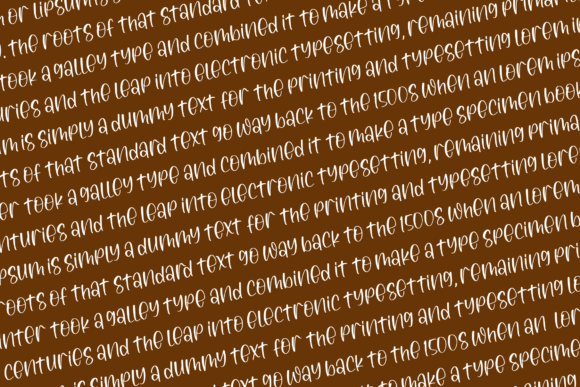 or Lipsum is
. the roots of that standard
took a galley type and combined it to make a
uries and the leap into electronic typesetting, remaining primari
um is simply a dummy text for the printing and typesetting lorem i
ts of that standard text go way back to the 1500s when an lorem ips
er took a galley type and combined it to make a type specimen book
nturies and the leap into electronic typesetting, remaining prima
ipsum is simply a dummy text for the printing and typesetting lore
roots of that standard text go way back to the 1500s when an lorem
inter took a galley type and combined it to make a type specimen b
centuries and the leap into electronic typesetting, remaining pri
is simply a dummy text for the printing and typesetting lo
text go way back to the 1500s when an lor
it to make a type specime